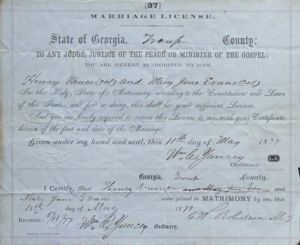 [37]
MARRIAGE LICENSE.
State of Georgia, Troup County:
TO ANY JUDGE, JUSTICE OF THE PEACE OR MINISTER OF THE GOSPEL:
YOU ARE HEREBY AUTHORIZED TO JOIN
Henry (col) and Mary Jane Evans (col)
In the Holy State of Matrimony, according to the Constitution and Laws
of this State, and for so doing, this shall be your sufficient License.
And you are hereby required to return this License to me, with your Certificate
hereon of the fact and date of the Marriage.
Given under my hand and seal, this 11th day of May 1877
Wm. C. Yancey
Ordinary.
Georgia, Troup County.
I Certify, That Henry and Mary Jane
Mary Jane Evans were joined in MATRIMONY by me, this
day of 1877
Recorded 5/18/77 Wm. C. Yancey
Ordinary.